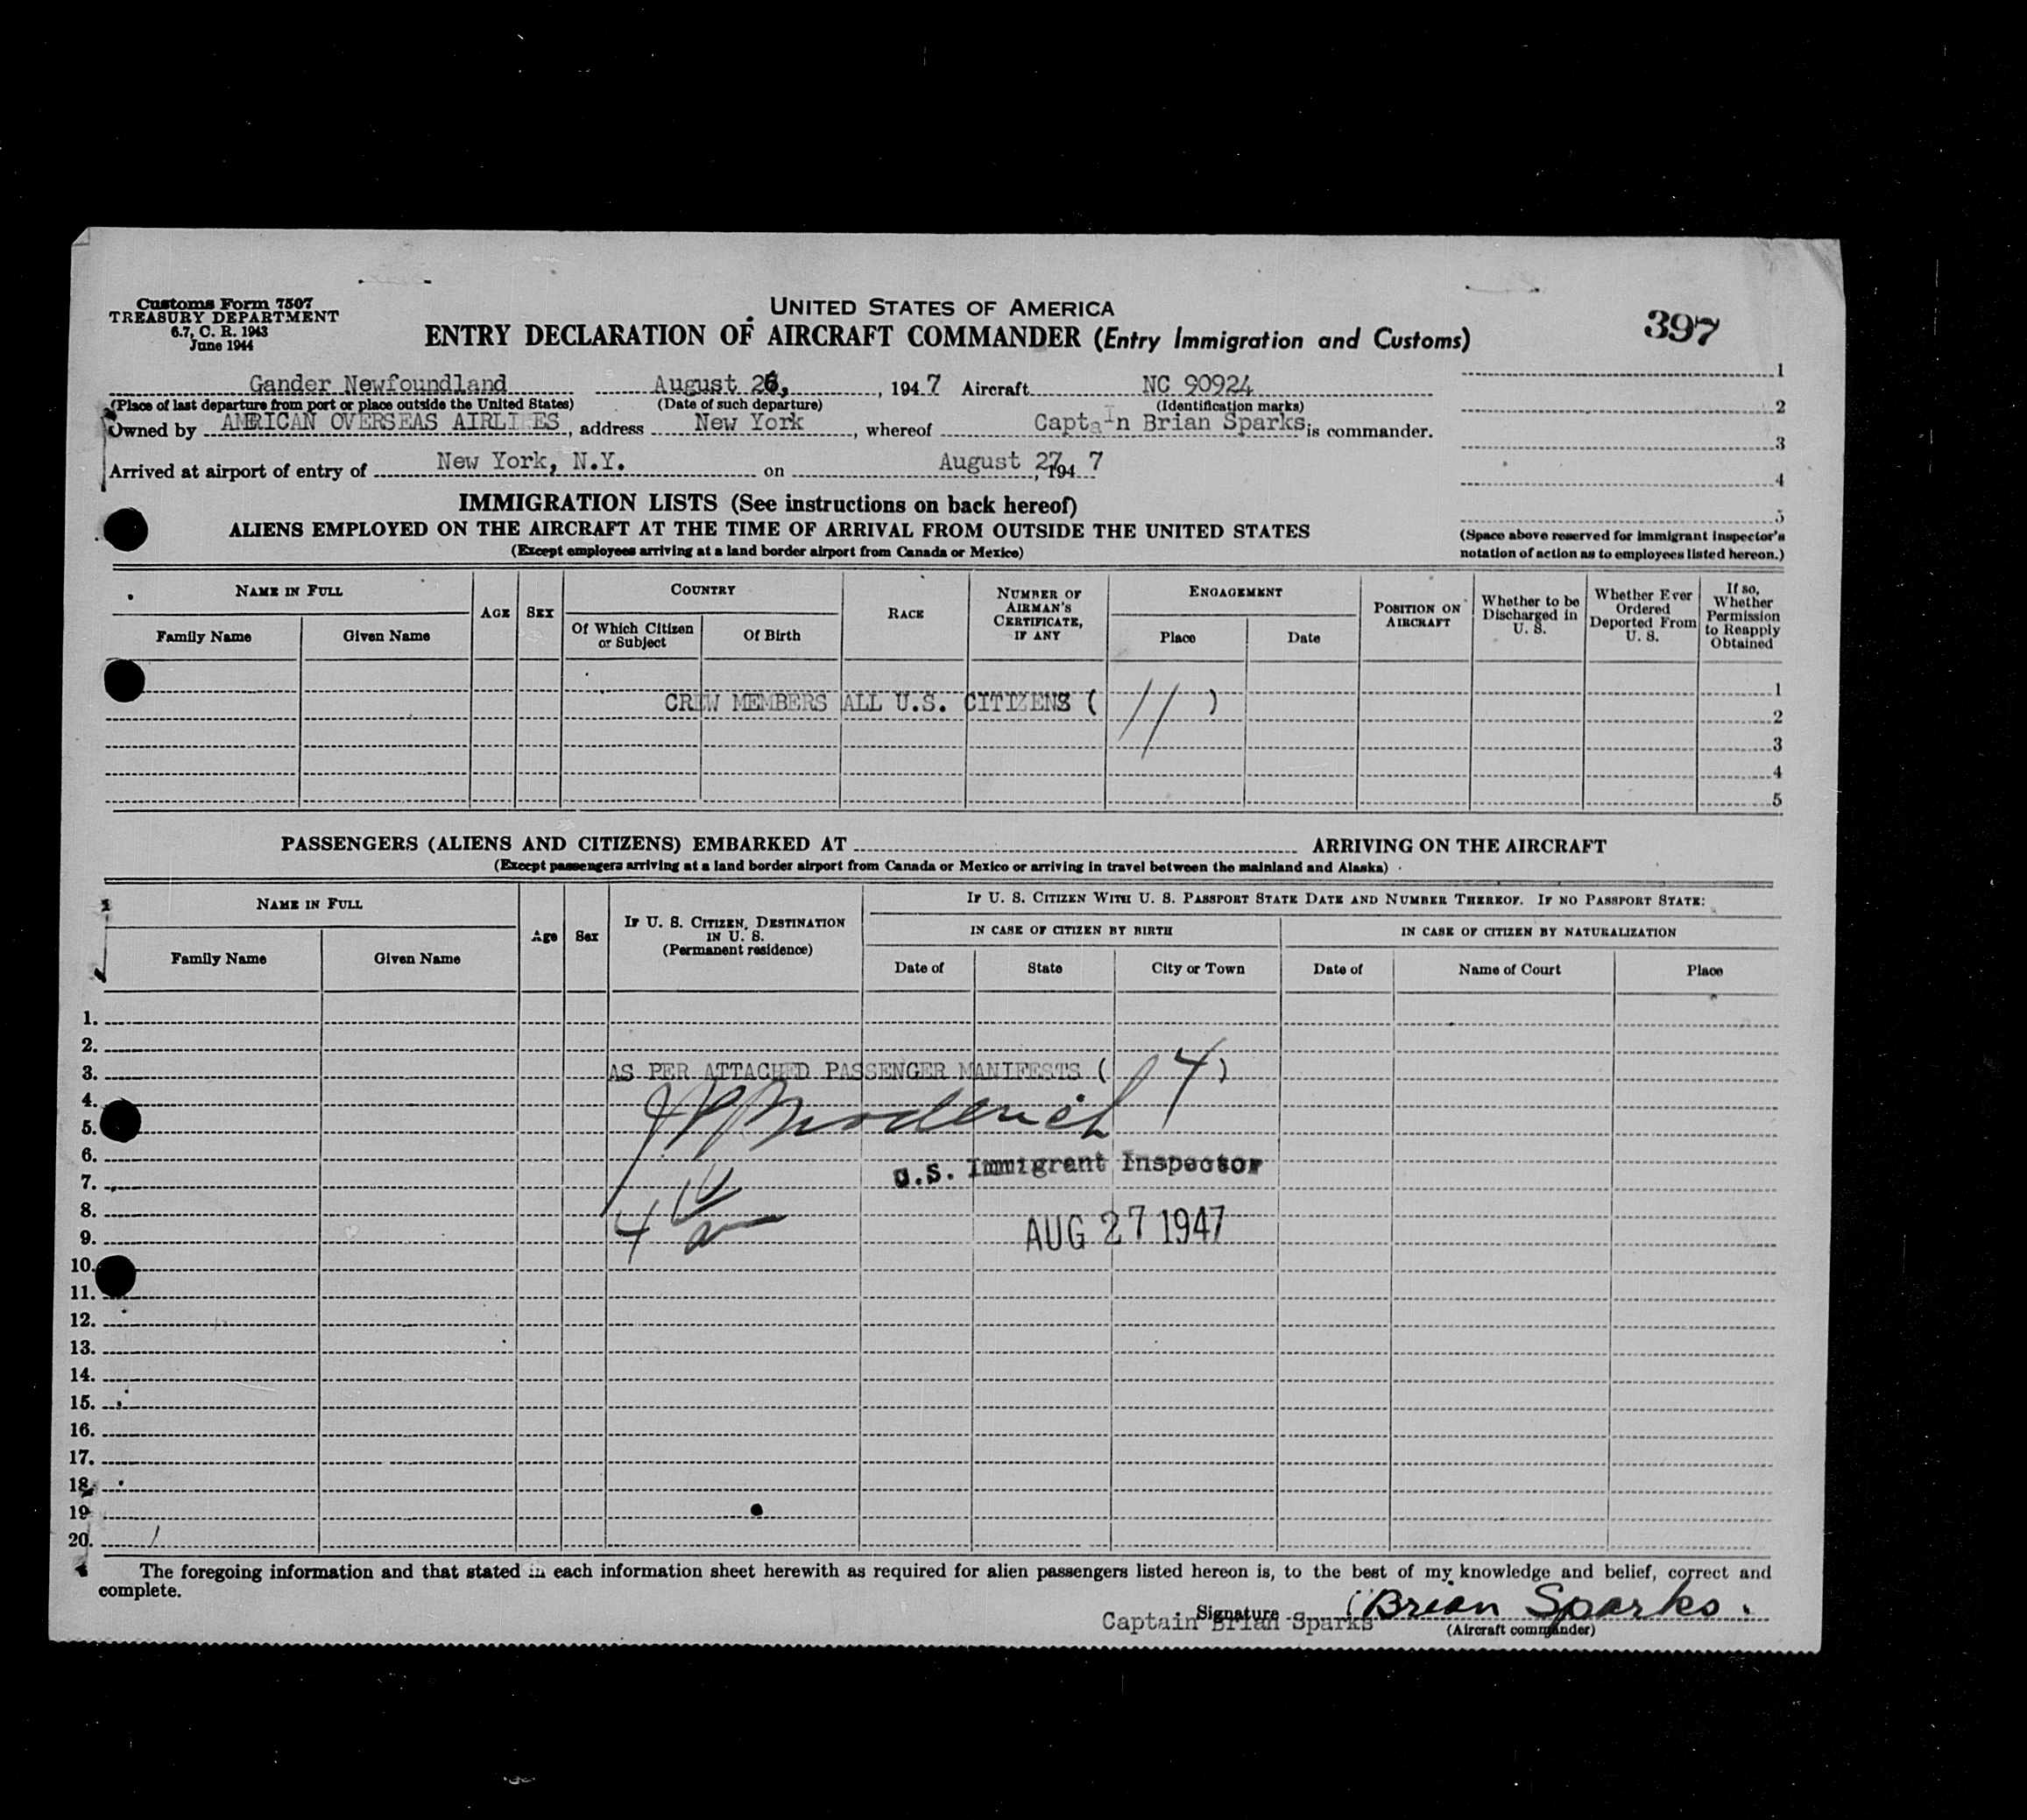 Customs Form 7507
TREASURY DEPARTMENT
6.7, C. R. 1943
June 1944
UNITED STATES OF AMERICA
ENTRY DECLARATION OF AIRCRAFT COMMANDER (Entry Immigration and Customs)
397
Gander Newfoundland August 26, , 1947 Aircraft NC 90924
(Place of last departure from port or place outside the United States) (Date of such departure) (Identification marks)
Owned by AMERICAN OVERSEAS AIRLINES, address New York, whereof Captain Brian Sparks is commander.
Arrived at airport of entry of New York, N.Y. on August 27, 1947
1
2
3
4
5
(Space above reserved for Immigrant Inspector's
notation of action as to employees listed hereon.)
IMMIGRATION LISTS (See instructions on back hereof)
ALIENS EMPLOYED ON THE AIRCRAFT AT THE TIME OF ARRIVAL FROM OUTSIDE THE UNITED STATES
(Except employees arriving at a land border airport from Canada or Mexico)
NAME IN FULL
Family Name
Given Name
AGE
SEX
COUNTRY
Of Which Citizen
or Subject
Of Birth
RACE
NUMBER OF
AIRMAN'S
CERTIFICATE,
IF ANY
ENGAGEMENT
Place
Date
POSITION ON
AIRCRAFT
Whether to be
Discharged in
U. S.
Whether Ever
Ordered
Deported From
U. S.
If so,
Whether
Permission
to Reapply
Obtained
CREW MEMBERS ALL U.S. CITIZENS ( 11 )
1
2
3
4
5
PASSENGERS (ALIENS AND CITIZENS) EMBARKED AT ARRIVING ON THE AIRCRAFT
(Except passengers arriving at a land border airport from Canada or Mexico or arriving in travel between the mainland and Alaska)
NAME IN FULL
Family Name
Given Name
Age
Sex
IF U. S. CITIZEN, DESTINATION
IN U. S.
(Permanent residence)
IF U. S. CITIZEN WITH U. S. PASSPORT STATE DATE AND NUMBER THEREOF. IF NO PASSPORT STATE:
IN CASE OF CITIZEN BY BIRTH
Date of
State
City or Town
IN CASE OF CITIZEN BY NATURALIZATION
Date of
Name of Court
Place
1.
2.
3. AS PER ATTACHED PASSENGER MANIFESTS ( 14 )
4.
5.
6. U.S. Immigrant Inspector
7.
8.
9. 4 AUG 27 1947
10.
11.
12.
13.
14.
15.
16.
17.
18.
19
20.
The foregoing information and that stated in each information sheet herewith as required for alien passengers listed hereon is, to the best of my knowledge and belief, correct and
complete.
Signature Brian Sparks.
Captain Brian Sparks
(Aircraft commander)